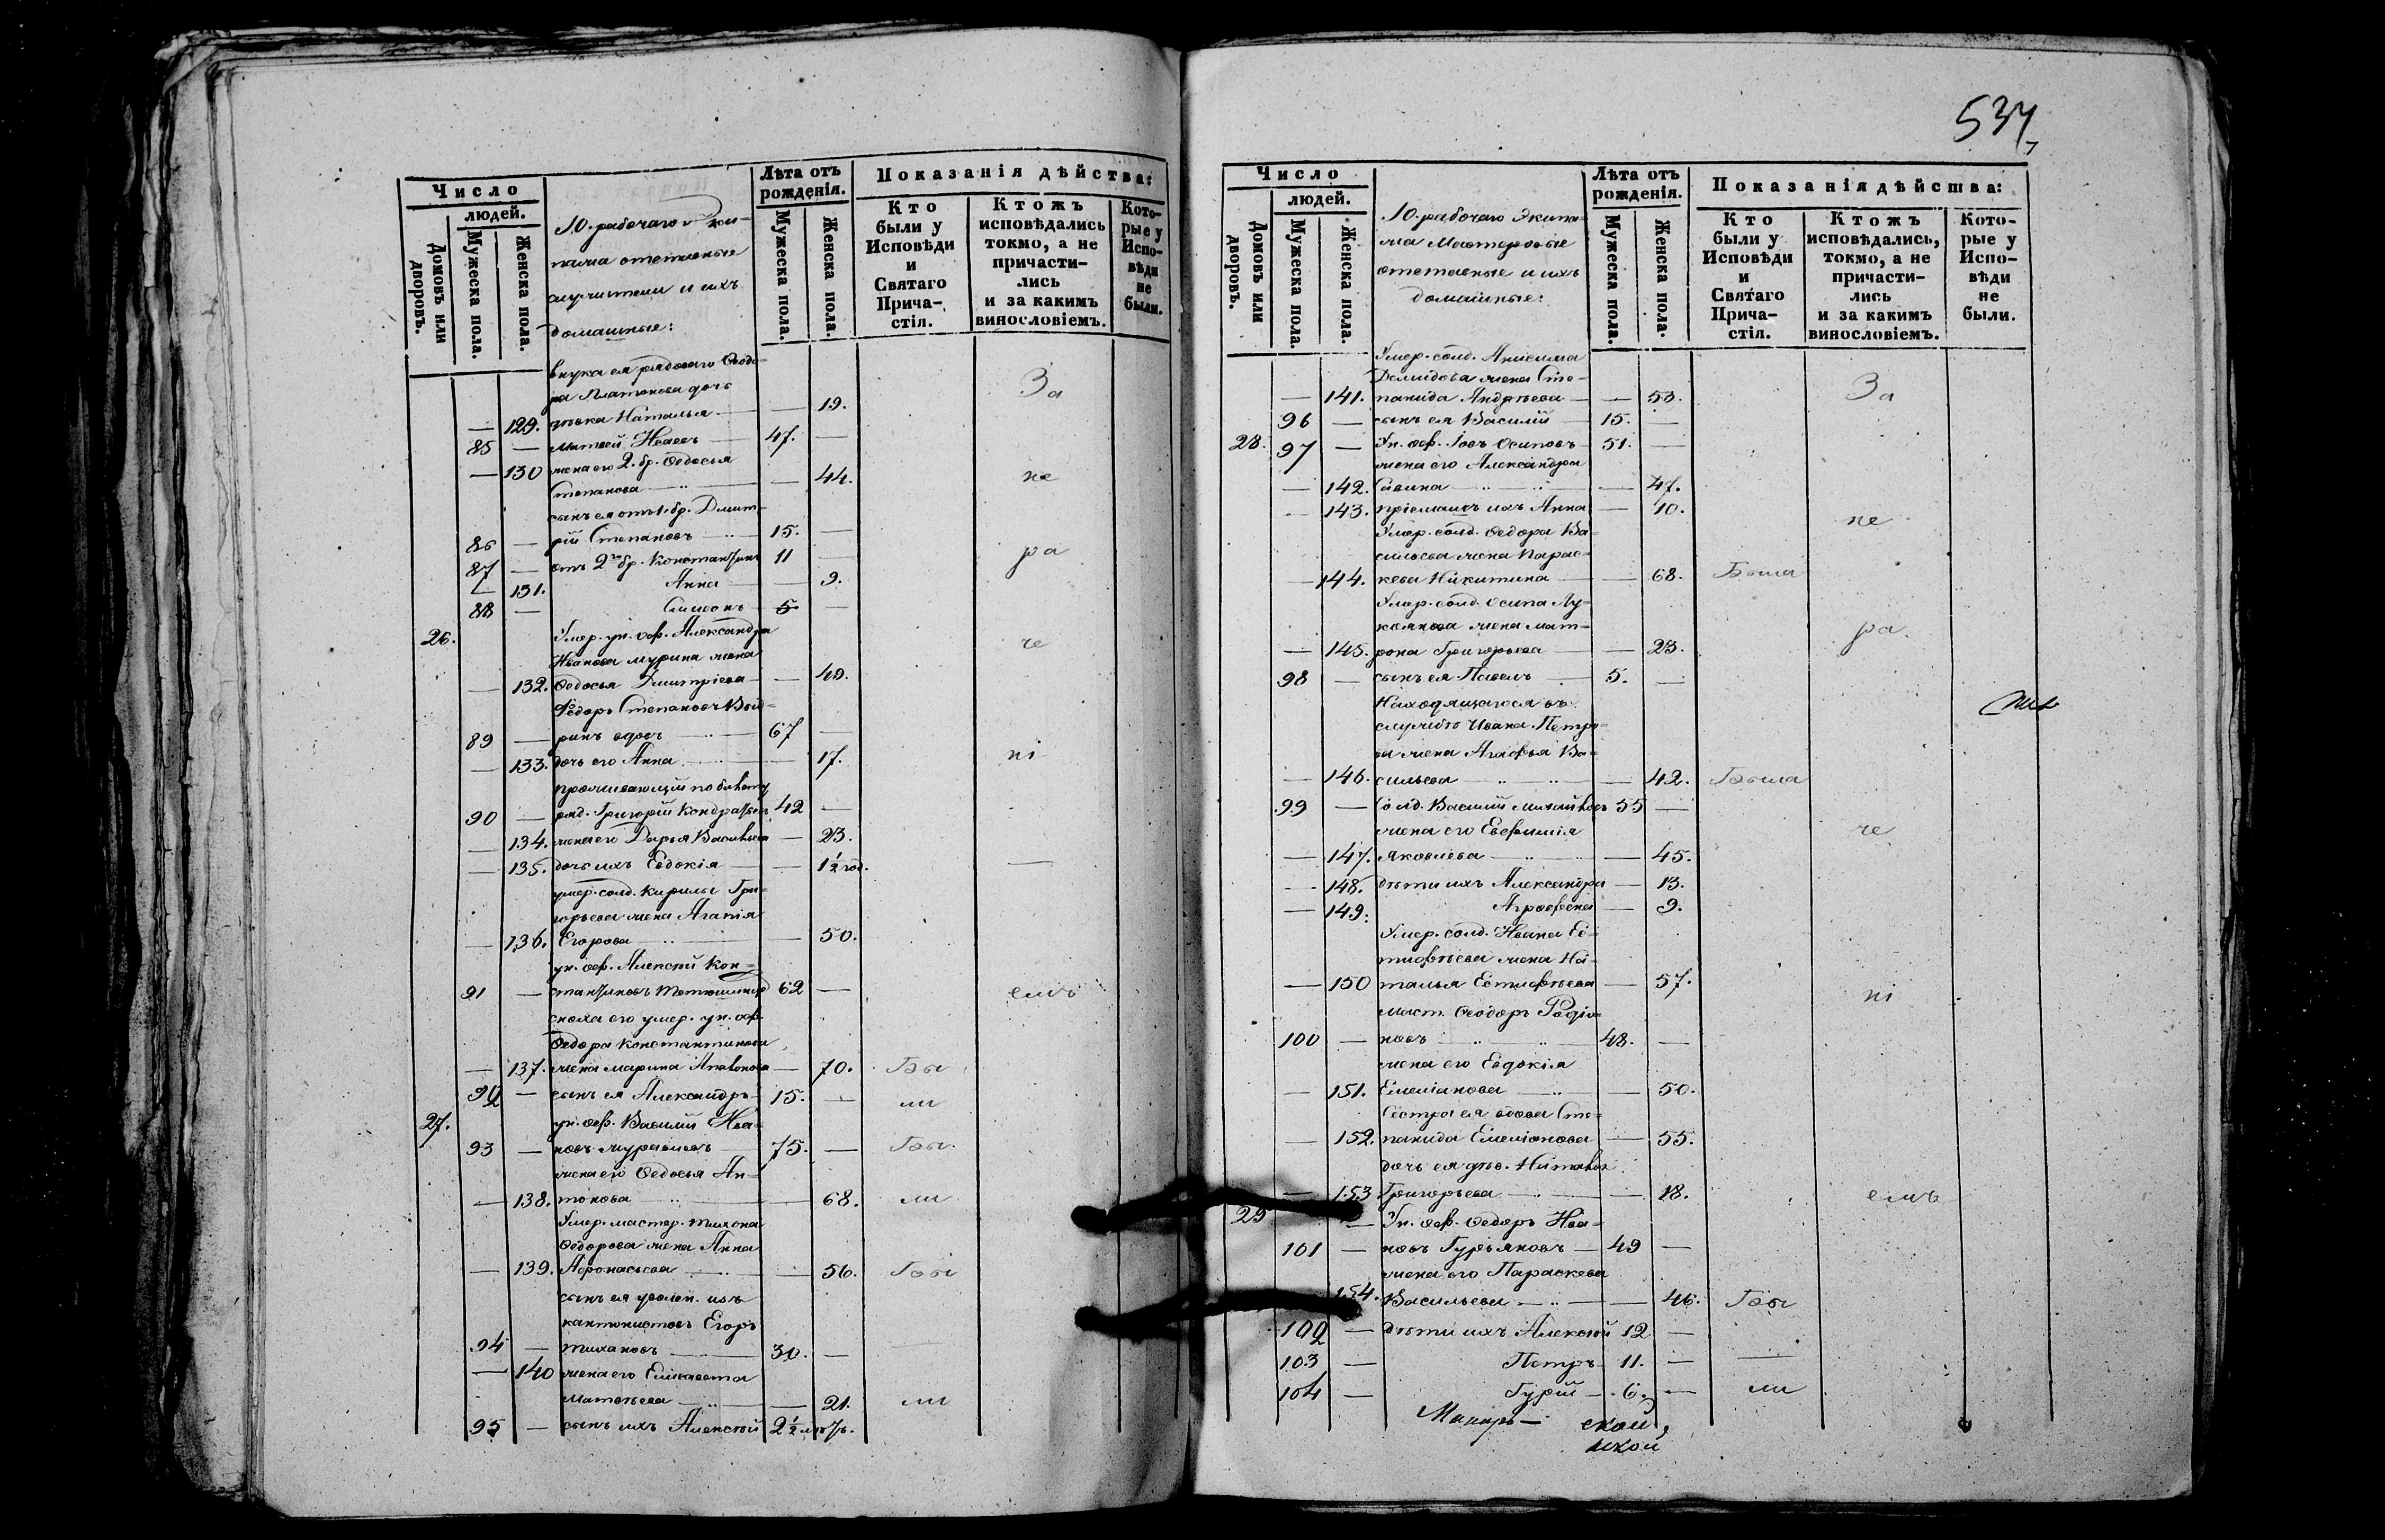 Число
людей.
Домовъ или дворовъ.
Мужеска пола.
Женска пола.
домашные:
Лѣта отъ рожденія.
Мужеска пола.
Женска пола.
Показанія дѣйства:
Кто были у Исповѣди и Святаго Прича-стія.
Ктожъ исповѣдались токмо, а не причасти-лись и за какимъ винословіемъ.
Кото-рые у Испо-вѣди не были.
внука ея рядоваго Ѳеодо-
ра Платонова дочь
— 129. дѣвка Наталья — — 19.
За
85 — Матвей Иваевъ 47. —
— 130 жена его 2. бр. Ѳедосья
Степанова — 44.
не
сынъ ея отъ 1. бр. Димит-
86 — рій Степановъ 15. —
87 — отъ 2го бр. Константинъ 11 —
ра
— 131. Анна — 9.
88 — Симеонъ 5 —
26. Умер. ун. оф. Александра
Иванова мурина жена
че
— 132. Ѳедосья Димитріева — 40.
Ѳедоръ Степановъ
89 — ринъ вдовъ 67 —
— 133. дочь его Анна — 17.
ні
проживающій по билету
90 — ряд. Григорій Кондратьевъ 42 —
— 134. жена его Дарья Васильева — 23.
— 135. дочь ихъ Евдокія — 1½ год.
умер. солд. Кирилы Гри-
горьева жена Агапія
— 136. Егорова — 50.
ун. оф. Алексѣй Кон-
91 — стантиновъ 62 —
емъ
сноха его умер. ун. оф.
Ѳедора Константинова
— 137. жена Марина — 70. Бы
92 — сынъ ея Александръ 15. — ли
27. ун. оф. Василій Ива-
93 — новъ Муравьевъ 75. — Бы
жена его Ѳедосья Ан-
— 138. тонова — 68. ли
Умер. мастер. Тихона
Ѳедорова жена Анна
— 139. Афонасьева — 56. Бы
сынъ ея уволен. изъ
кантонистовъ Егоръ
94 — Тихановъ 30. —
— 140 жена его Елисавета
Матвѣева — 21. ли
95 — сынъ ихъ Алексѣй 2½ лѣтъ.
537
Число
людей.
Домовъ или дворовъ.
Мужеска пола.
Женска пола.
10. рабочаго Экипа-
жа Мастеровые
отставные и ихъ
домашные:
Лѣта отъ рожденія.
Мужеска пола.
Женска пола.
Показанія дѣйства:
Кто были у Исповѣди и Святаго Прича-стія.
Ктожъ исповѣдались, токмо, а не причасти-лись и за какимъ винословіемъ.
Кото-рые у Испо-вѣди не были.
Умер. солд. Анисима
Демидова жена Сте-
— 141. панида Андрѣева — 53.
За
96 — сынъ ея Василій 15. —
28. 97 — Ун. оф. Іовъ Осиповъ 51. —
жена его Александра
— 142. Савина — 47.
— 143. пріемышъ ихъ Анна — 10.
не
Умер. солд. Ѳедора Ва-
сильева жена Парас-
— 144. кева Никитина — 68. Была
Умер. солд. Осипа Лу-
кьянова жена Мат-
ра
— 145. рона Григорьева — 23.
98 — сынъ ея Павелъ 5. —
Находящагося въ
службѣ Ивана Петро-
ва жена Агафья Ва-
— 146. сильева — 42. Была
99 — Солд. Василій Михайловъ 55 —
жена его Евфимія
че
— 147. Яковлева — 45.
— 148. дѣти ихъ Александра — 13.
— 149. Аграфена — 9.
Умер. солд. Ивана Ев-
тифѣева жена На-
— 150 талья Евтифѣева — 57.
ні
маст. Ѳеодоръ Родіо-
100 — новъ 48. —
жена его Евдокія
— 151. Емеліанова — 50.
Сестра ея вдова Сте-
— 152. панида Емеліанова — 55.
дочь ея дѣв. Наталья
— 153 Григорьева — 18.
емъ
29 Ун. оф. Ѳедоръ Ива-
101 — новъ Гурьяновъ 49 —
жена его Параскева
154. Васильева — 46. Бы
102 — дѣти ихъ Алексѣй 12 —
103 — Петръ 11. —
104 — Гурій 6. — ли
Макаръ —